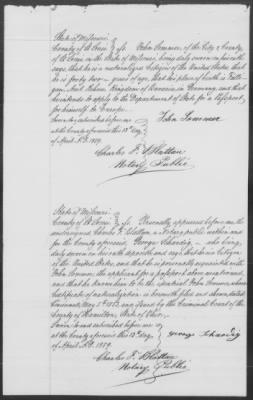 State of Missouri
County of St Louis } ss. John Sommer, of the City & County
of St Louis in the State of Missouri, being duly sworn on his oath
says, that he is a naturalized Citizen of the United States, that
he is forty two years of age, that his place of birth is
Kingdom of Bavaria, in Germany, and that
he intends to apply to the Department of State for a Passport,
for himself to travel.
Sworn & subscribed before me
at the County aforesaid this 12th day
of April A.D. 1879.
John Sommer
Charles F. Blattau
Notary Public
State of Missouri
County of St Louis } ss. Personally appeared before me the
undersigned Charles F. Blattau, a Notary public within and
for the County aforesaid, George Schaedig who being
duly sworn on his oath deposeth and says that he is a Citizen
of the United States, and that he is personally acquainted with
John Sommer, the applicant for a passport above mentioned,
and that he knows him to be the identical John Sommer, whose
Certificate of naturalization is herewith filed and shown, dated
Cincinnati, May 1st 1873, and issued by the Criminal Court of the
County of Hamilton, State of Ohio.
Sworn to and subscribed before me
at the County aforesaid this 12th day
of April A.D. 1879.
George Schaedig
Charles F. Blattau
Notary Public